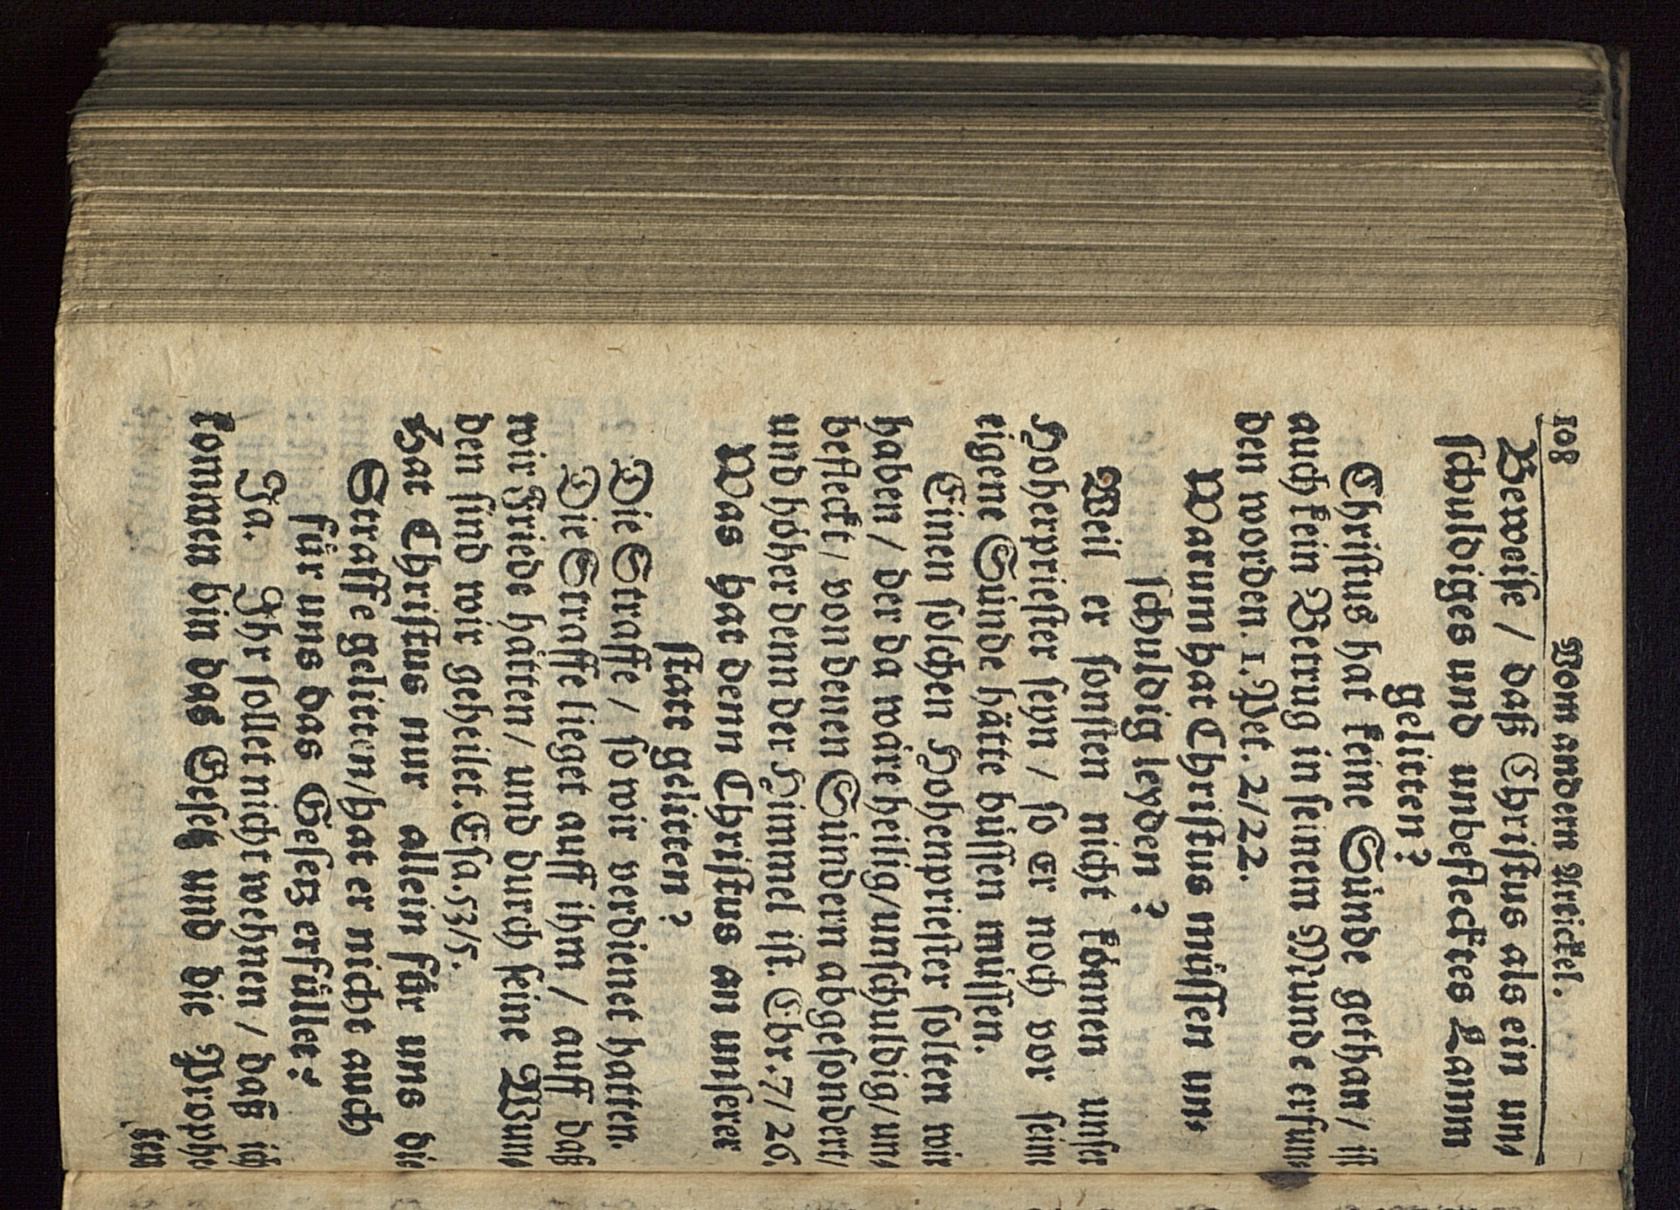 108 Vom andern Artickel.
Beweise / daß Christus als ein un-
schuldiges und unbeflecktes Lamm
gelitten?
Christus hat keine Sünde gethan / ist
auch kein Betrug in seinem Munde erfun-
den worden. 1. Pet. 2/22.
Warum hat Christus müssen un-
schuldig leyden?
Weil er sonsten nicht können unser
Hoherpriester seyn / so Er noch vor seine
eigene Sünde hätte büssen müssen.
Einen solchen Hohenpriester solten wir
haben / der da wäre heilig/unschuldig/un-
befleckt/ von denen Sündern abgesondert/
und höher denn der Himmel ist. Ebr. 7/26.
Was hat denn Christus an unserer
statt gelitten?
Die Straffe / so wir verdienet hatten.
Die Straffe lieget auff ihm / auff daß
wir Friede hätten / und durch seine Wun-
den sind wir geheilet. Esa. 53/5.
Hat Christus nur allein für uns die
Straffe gelitten/hat er nicht auch
für uns das Gesetz erfüllet?
Ja. Ihr sollet nicht wehnen / daß ich
kommen bin das Gesetz und die Prophe-
ten